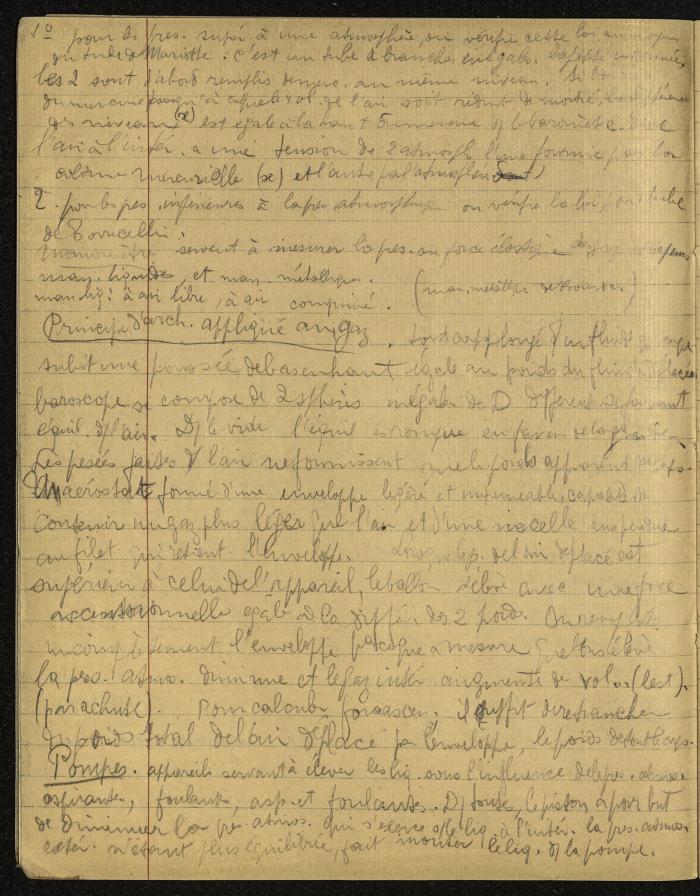 1º pour les pres. supér. à une atmosphère, on vérifie cette loi au moyen
du tube de Mariotte : c'est un tube à branches inégales.
les 2 sont d'abord remplis de merc. au même niveau. Si
du mercure jusqu'à ce que le vol. de l'air soit réduit de moitié, la différence
des niveaux (x) est égale à la haut. du baromètre. donc
l'air à l'intér. a une tension de 2 atmosph. l'une fournie par la
colonne mercurielle (x) et l'autre par l'atmosphère
2. pour les pres. inférieures à la pres. atmosphérique on vérifie la loi par le tube
de Torricelli.
Manomètre servent à mesurer la pres. ou force élastique des gaz
man. liquides et man. métallique.
man. liq : à air libre, à air comprimé. (man. métallique de Bourdon)
Principe d'Arch. appliqué aux gaz. tout corps plongé d/ un fluide
subit une poussée de bas en haut égale au poids du fluide déplacé
baroscope se compose de 2 sphères inégales de D différent se faisant
équil. d/ l'air. D/ le vide l'équil. est rompu en faveur de la grande.
Les pesées faites d/ l'air ne fournissent que le poids apparent
Un aérostat formé d'une enveloppe légère et imperméable, capable de
contenir un gaz plus léger que l'air et d'une nacelle suspendue
au filet qui retient l'enveloppe. Lorsque le p. de l'air déplacé est
supérieur à celui de l'appareil, le ballon s'élève avec une force
ascensionnelle égale à la différ. des 2 poids. On remplit
incomplètement l'enveloppe parce que à mesure que l'on s'élève
la pres. atmos. diminue et le gaz intér. augmente de vol. (lest).
(parachute). Pour calculer force ascen. il suffit de retrancher
du poids total de l'air déplacé par l'enveloppe, le poids de tout le corps.
Pompes. appareils servant à élever les liq. sous l'influence de la pres. atmos.
aspirantes, foulantes, asp. et foulantes. D/ toutes, le piston a pour but
de diminuer la pre. atmos. qui s'exerce s/ le liq. à l'intér. la pres. atmos.
extér. n'étant plus équilibrée, fait monter le liq. d/ la pompe.